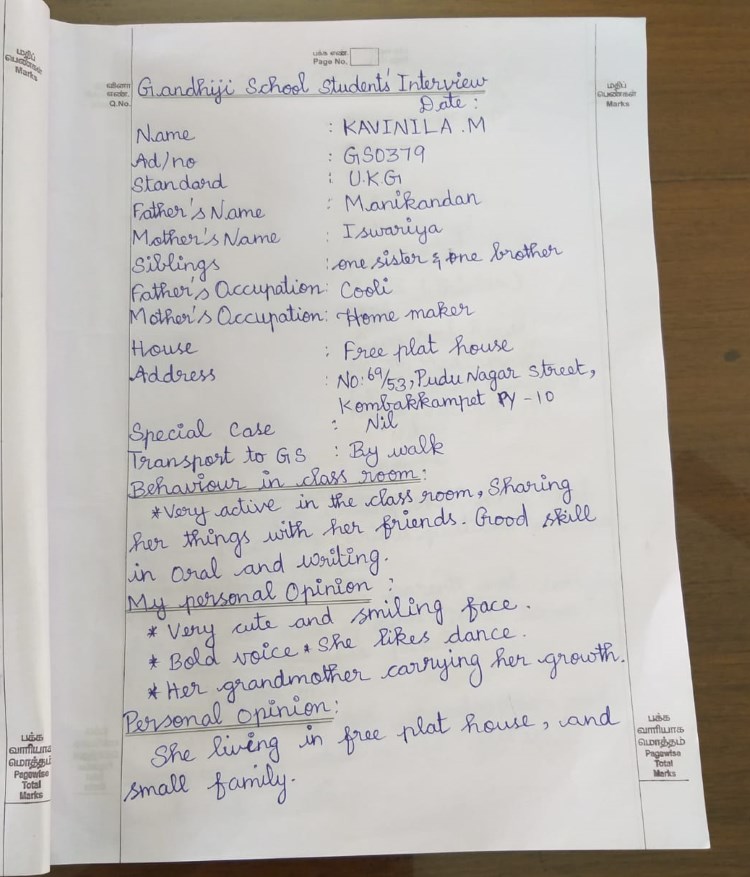 மதிப்
பெண்கள்
Marks
பக்க எண்.
Page No.
வினா
எண்.
Q.No.
மதிப்
பெண்கள்
Marks
Gandhiji School Students' Interview
Date :
Name : KAVINILA .M
Ad/no : GS0379
Standard : U.K.G
Father's Name : Manikandan
Mother's Name : Iswariya
Siblings : one sister & one brother
Father's Occupation: Cooli
Mother's Occupation: Home maker
House : Free plat house
Address : No: 69/53, Pudu Nagar Street,
Kombakkampet PY - 10
Special Case : Nil
Transport to GS : By walk
Behaviour in class room :
* Very active in the class room, Sharing
her things with her friends. Good skill
in Oral and writing.
My personal Opinion :
* Very cute and smiling face.
* Bold voice * She likes dance.
* Her grandmother carrying her growth.
Personal Opinion :
She living in free plat house, and
small family.
பக்க
வாரியாக
மொத்தம்
Pagewise
Total
Marks
பக்க
வாரியாக
மொத்தம்
Pagewise
Total
Marks